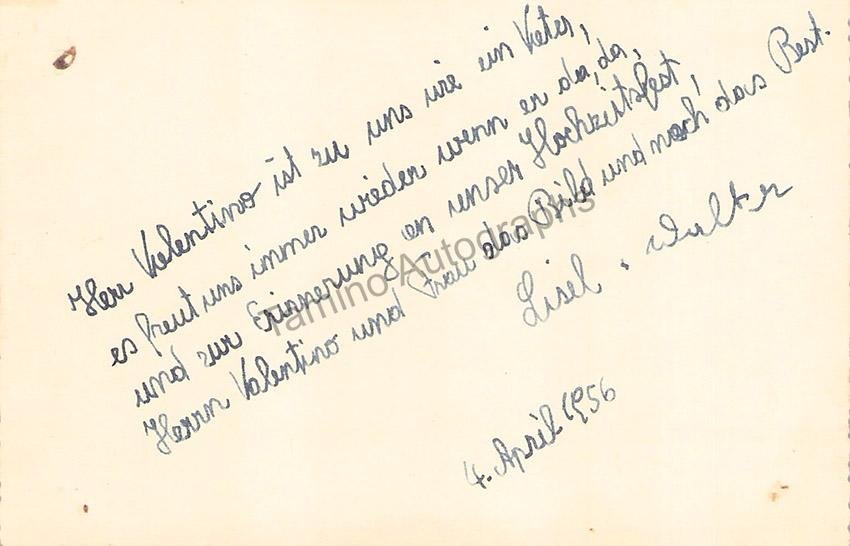 Herr Valentino ist zu uns wie ein Vater,
es freut uns immer wieder wenn er da, da,
und zur Erinnerung an unser Hochzeitsfest,
Herrn Valentino und Frau das Bild und noch das Best.
Lisel . Walter
4. April 1956
Tamino Autographs